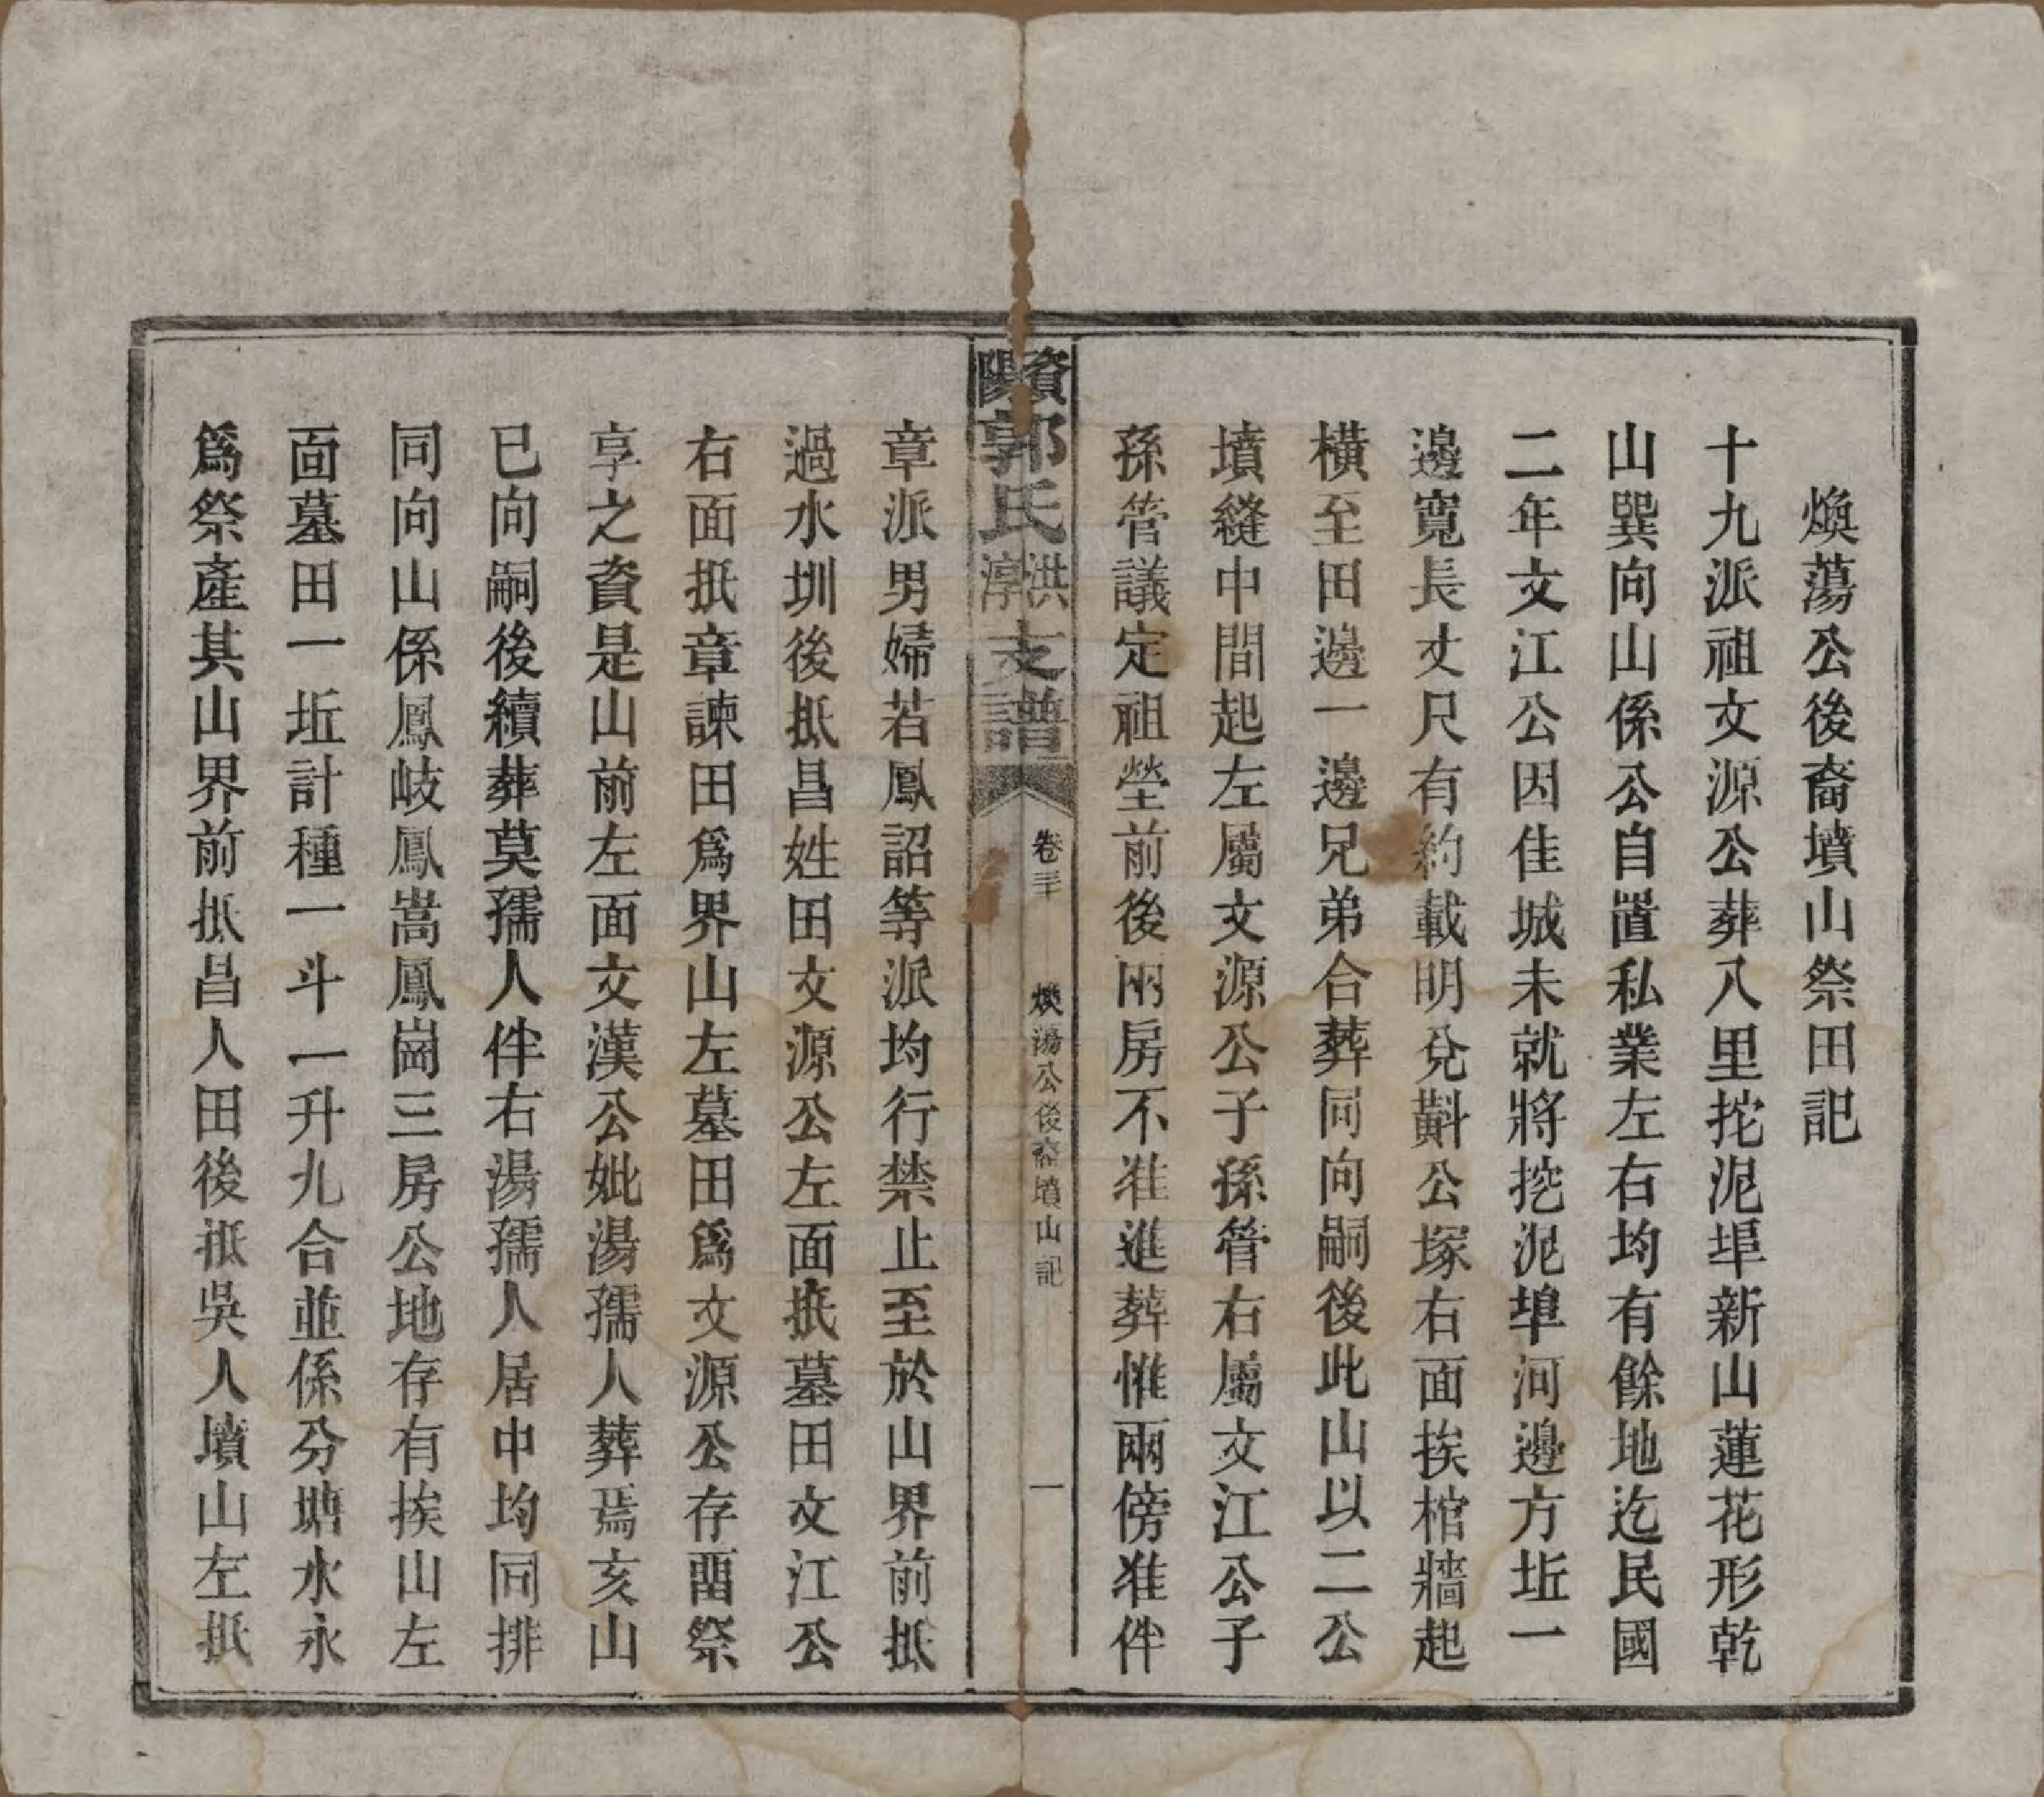 煥蕩公後裔墳山祭田記
十九派祖文源公葬八里挖泥埠新山蓮花形乾
山巽向山係公自置私業左右均有餘地迄民國
二年文江公因佳城未就將挖泥埠河邊方坵一
邊寬長丈尺有約載明兌斢公塚右面挨棺牆起
橫至田邊一邊兄弟合葬同向嗣後此山以二公
墳縫中間起左屬文源公子孫管右屬文江公子
孫管議定祖塋前後兩房不准進葬惟兩傍准伴
資陽郭氏洪淳支譜
卷三十
煥蕩公後裔墳山記
一
章派男婦若鳳詔等派均行禁止至於山界前抵
過水圳後抵昌姓田文源公左面抵墓田文江公
右面抵章諫田為界山左墓田為文源公存畱祭
享之資是山前左面文漢公妣湯孺人葬焉亥山
已向嗣後續葬莫孺人伴右湯孺人居中均同排
同向山係鳳岐鳳嵩鳳崗三房公地存有挨山左
面墓田一坵計種一斗一升九合並係分塘水永
為祭產其山界前抵昌人田後抵吳人墳山左抵